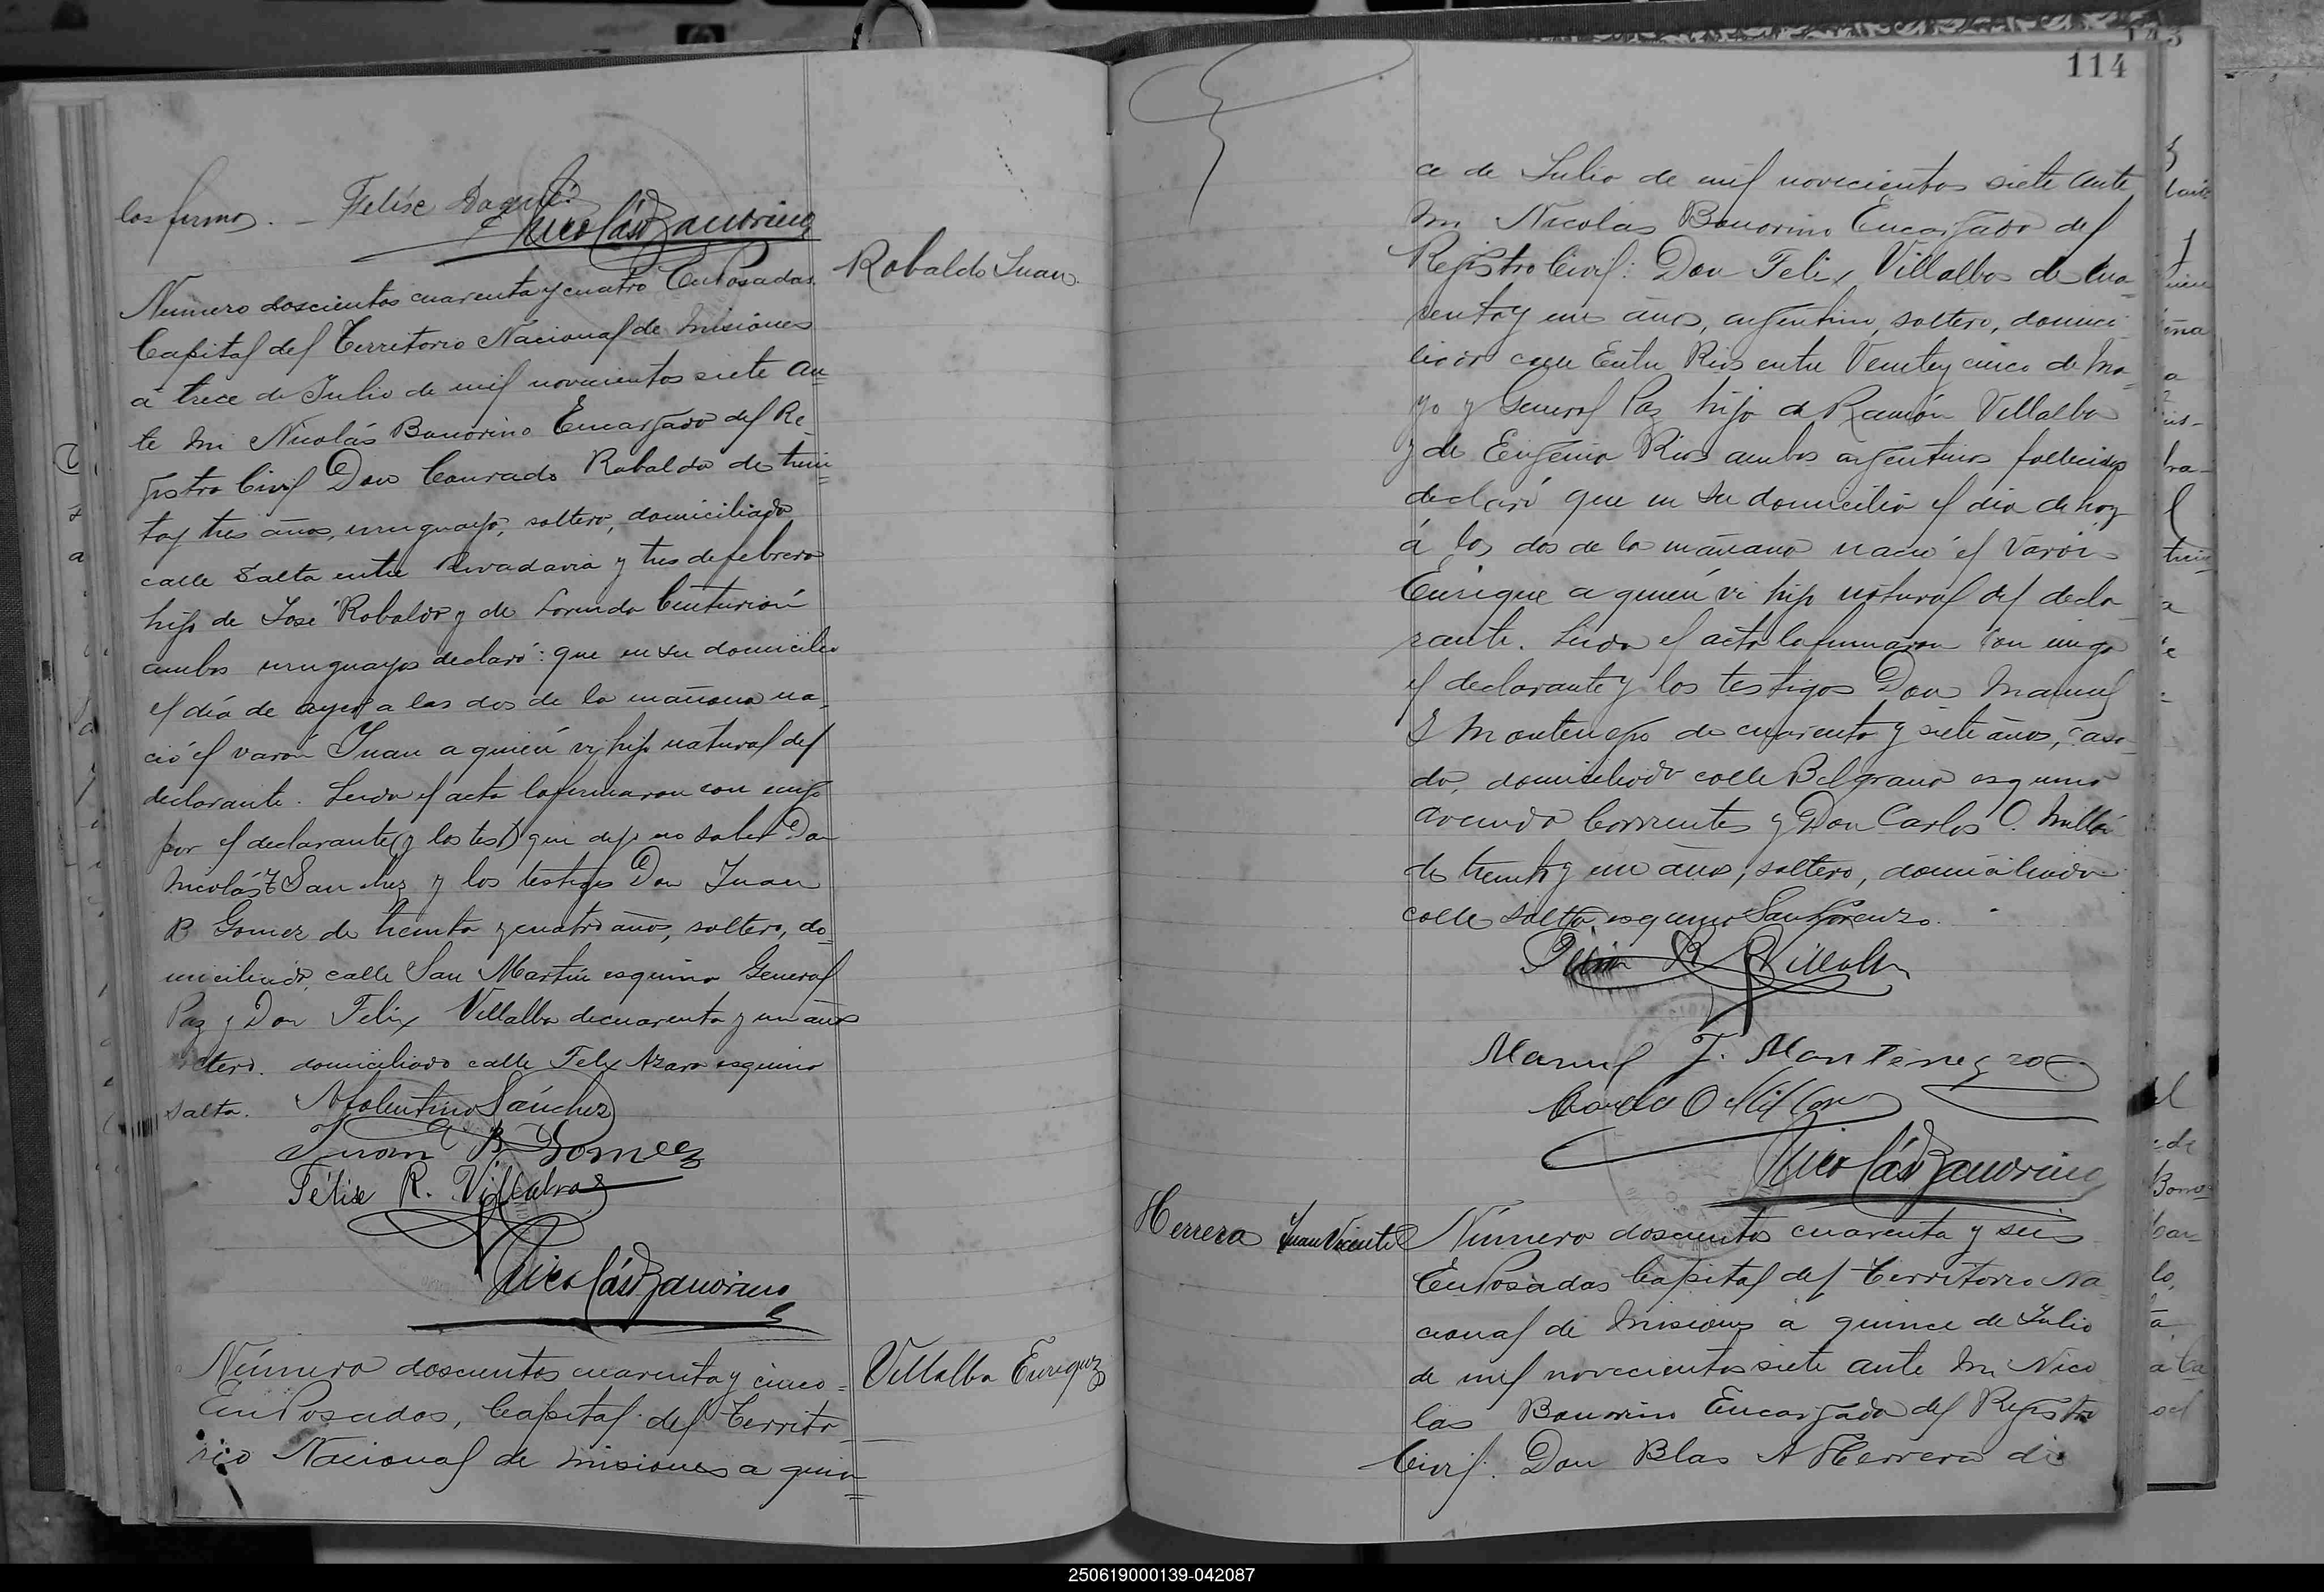 las firmas. — Felise
Nicolás Bonorino
Robaldo Juan.
Número doscientos cuarenta y cuatro En Posadas
Capital del Territorio Nacional de Misiones
á trece de Julio de mil novecientos siete an
te mi Nicolás Bonorino Encargado del Re-
gistro Civil Don Conrado Robaldo de trein
tay tres años, uruguayo, soltero, domiciliado
calle Salta entre Rivadavia y tres de febrero
hijo de José Robaldo y de Lorenda Centurión
ambos uruguayos declaró: que en su domicilio
el día de ayer a las dos de la mañana na-
ció el varón Juan a quién vi hijo natural del
declarante. Leida el acta la firmaron con migo
por el declarante (y los tes) que dijo no saber Don
Nicolás T Sanchez y los testigos Don Juan
B Gomez de treinta y cuatro años, soltero, do-
miciliado calle San Martin esquina General
Paz y Don Felix Villalba de cuarenta y un años
soltero. domiciliado calle Felix Azara esquina
Salta. NTolentino Sánchez
Juan B Gomez
Félix R. Villalba
Nicolás Bonorino
Villalba Enrique
Número doscientos cuarenta y cinco-
En Posadas, Capital del Territo-
rio Nacional de Misiones a quin
114
ce de Julio de mil novecientos siete ante
mi Nicolás Bonorino Encargado del
Registro Civil: Don Felix Villalba de cua-
renta y un años, argentino, soltero, domici-
liado calle Entre Rios entre Veintey cinco de Ma-
yo y General Paz hijo de Ramón Villalba
y de Eugenia Rios ambos argentinos fallecidos
declaró que en su domicilio el día de hoy
á las dos de la mañana nació el varón
Enrique a quién vi hijo natural del decla-
rante. Leida el acta la firmaron con migo
el declarante y los testigos Don Manuel
J Montenegro de cuarenta y siete años, casa-
do, domiciliado calle Belgrano esquina
avenida Corrientes y Don Carlos O. Millán
de treinta y un años, soltero, domiciliado
calle Salta esquina San Lorenzo.
Félix R Villalba
Manuel J. Montenegro
Carlos O Millan
Nicolás Bonorino
Herrera Juan Vicente
Número doscientos cuarenta y seis
En Posadas Capital del Territorio Na
cional de Misiones a quince de Julio
de mil novecientos siete ante mi Nico
las Bonorino Encargado del Registro
Civil. Don Blas A Herrera de
250619000139-042087